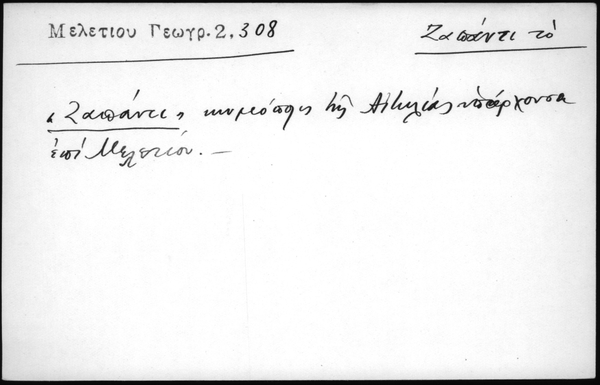 Μελετίου Γεωγρ. 2, 308
Ζαπάντι τὸ
«Ζαπάντι» κωμόπολις τῆς Αἰτωλίας ὑπάρχουσα
ἐπὶ Μελετίου. —